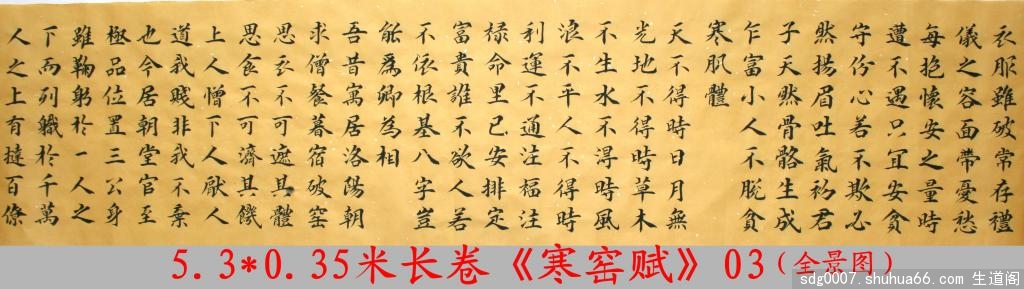 衣服雖破常存禮
儀之容面帶憂愁
每抱懷安之量時
遭不遇只宜安貧
守份心若不欺必
然揚眉吐氣初君
子天然骨骼生成
乍富小人不脫貧
寒肌體
天不得時日月無
光地不得時草木
不生水不得時風
浪不平人不得時
利運不通注福注
祿命里已安排定
富貴誰不欲人若
不依根基八字豈
能爲卿為相
吾昔寓居洛陽朝
求僧餐暮宿破窑
思衣不可遮其體
思食不可濟其饑
上人憎下人厭人
道我賤非我不棄
也今居朝堂官至
極品位置三公身
雖鞠躬於一人之
下而列職於千萬
人之上有撻百僚
5.3*0.35米长卷《寒窑赋》03(全景图)
sdg0007.shuhua66.com 生道阁